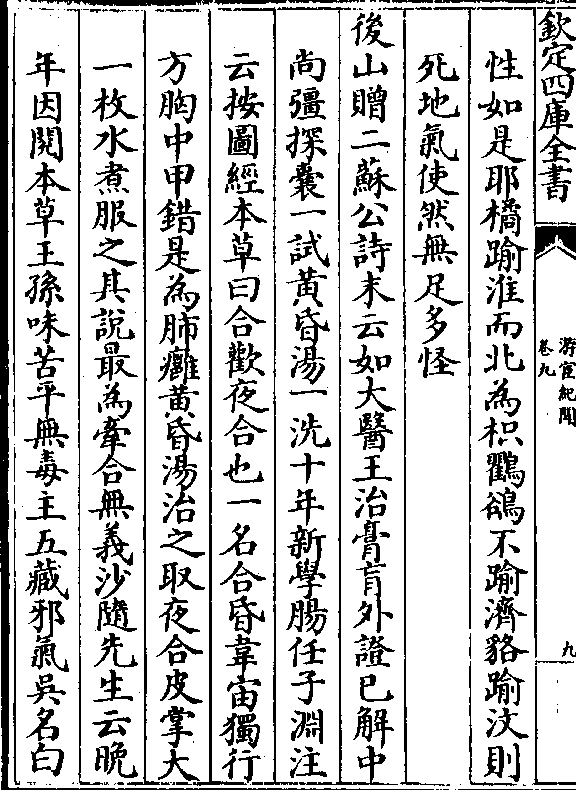 欽定四庫全書
游宦紀聞
卷九
九
性如是耶橘踰淮而北為枳鸜鵒不踰濟貉踰汶則
死地氣使然無足多怪
後山贈二蘇公詩末云如大醫王治膏肓外證已解中
尚彊探囊一試黃昏湯一洗十年新學腸任子淵注
云按圖經本草曰合歡夜合也一名合昏韋宙獨行
方胸中甲錯是為肺癰黃昏湯治之取夜合皮掌大
一枚水煮服之其說最為牽合無義沙隨先生云晚
年因閱本草王孫味苦平無毒主五藏邪氣吳名白